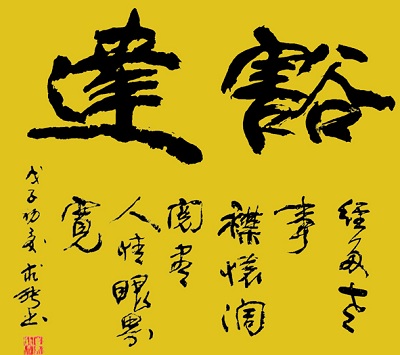 豁達
經多世
事
襟懷闊
閱盡
人情眼界
寬
戊子